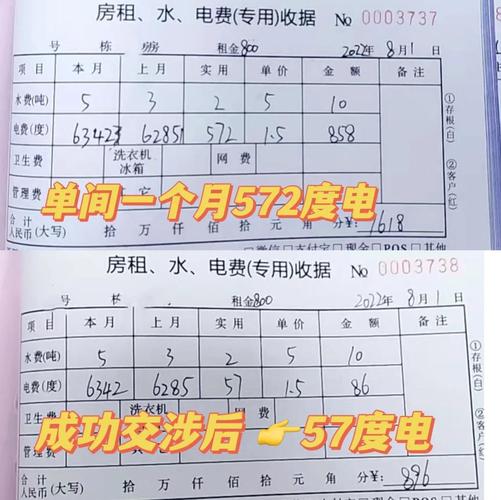 房租、水、电费(专用)收据 No 0003737
号 栋 房 租金800 2022年8月1日
项目 本月 上月 实用 单价 金额 备注
水费(吨) 5 3 2 5 10
电费(度) 63423 62851 572 1.5 858
卫生费 洗衣机 冰箱 网费
管理费 其它
单间一个月572度电
合计人民币(大写) 拾 万 仟 佰 拾 元 角 分¥: 1618
微信 支付宝 现金 POS 其他
①存根(白) ②客户(红)
房租、水、电费(专用)收据 No 0003738
号 栋 租金800 2022年8月1日
项目 本月 上月 实用 单价 金额 备注
水费(吨) 5 3 2 5 10
电费(度) 6342 6285 57 1.5 86
卫生费 洗衣机 网费
成功交涉后 👉57度电
管理费
合计人民币(大写) 拾 万 仟 佰 拾 元 角 分 ¥: 896
①存根(白) ②客户(红)